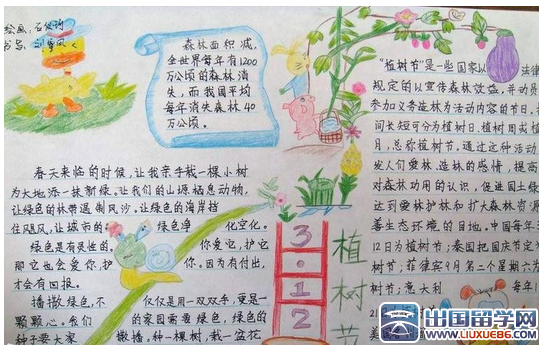 绘画:
书写:
森林面积减,
全世界每年有1200
万公顷的森林消
失,而我国平均
每年消失森林40
万公顷。
春天来临的时候,让我亲手栽一棵小树
为大地添一抹新绿。让我们的山塬栖息动物,
让绿色的林带遏制风沙。让绿色的海岸挡
住飓风,让城市的绿色净化空化。
绿色是有灵性的,你爱它,护它
那它也会爱你,护你。因为有付出,
才会有回报。
播撒绿色,不仅仅是用一双双手,更是一
颗颗心。我们的家园需要绿色,绿色的
种子要大家撒播。种一棵树,栽一盆花
3.12
植树节
“植树节”是一些国家以法律
规定的以宣传森林效益,并动员
参加义务造林为活动内容的节日。按
间长短可分为植树日、植树周或植
月,总称植树节。通过这种活动,
发人们爱林、造林的感情,提高
对森林功用的认识,促进国土绿
达到爱林护林和扩大森林资源
善生态环境的目地。中国每年3
12日为植树节;泰国把国庆节定为
树节;菲律宾9月第二个星期六为
树节;意大利每年1
21
美
出国留学网
www.liuxue86.com